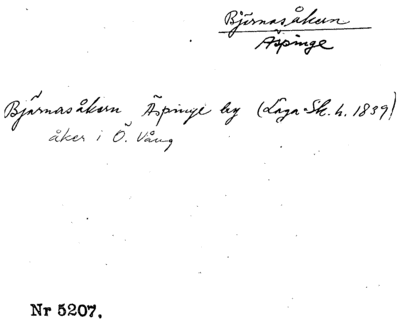 Björnasåkern
Äspinge
Björnasåkern Äspinge by (Laga Sk. h. 1839)
åker i Ö. Vång
Nr 5207.